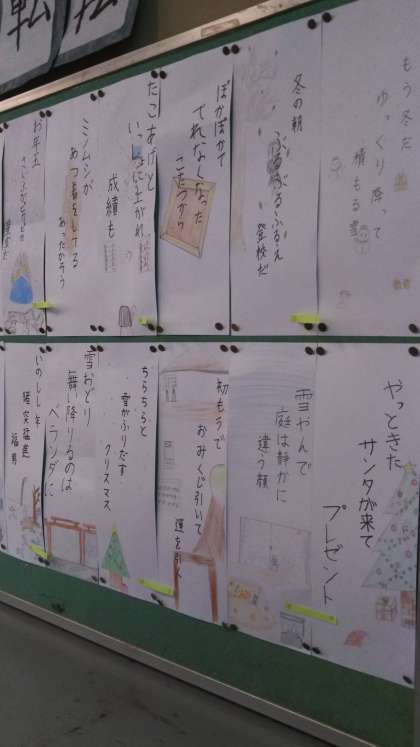 転
もう冬だ
ゆっくり降って
積もる
冬の朝
ぶるぶるふるえ
登校だ
ぽかぽかで
でれなくなった
こたつから
たこあげと
いっしょに上がれ
成績も
ミノムシが
あつ着をしてる
あったかそう
お年玉
やっときた
サンタが来て
プレゼント
雪やんで
庭は静かに
違う顔
初もうで
おみくじ引いて
運を引く
ちらちらと
雪がふりだす
クリスマス
雪おどり
舞い降りるのは
ベランダに
いのしし年
猪突猛進
福男